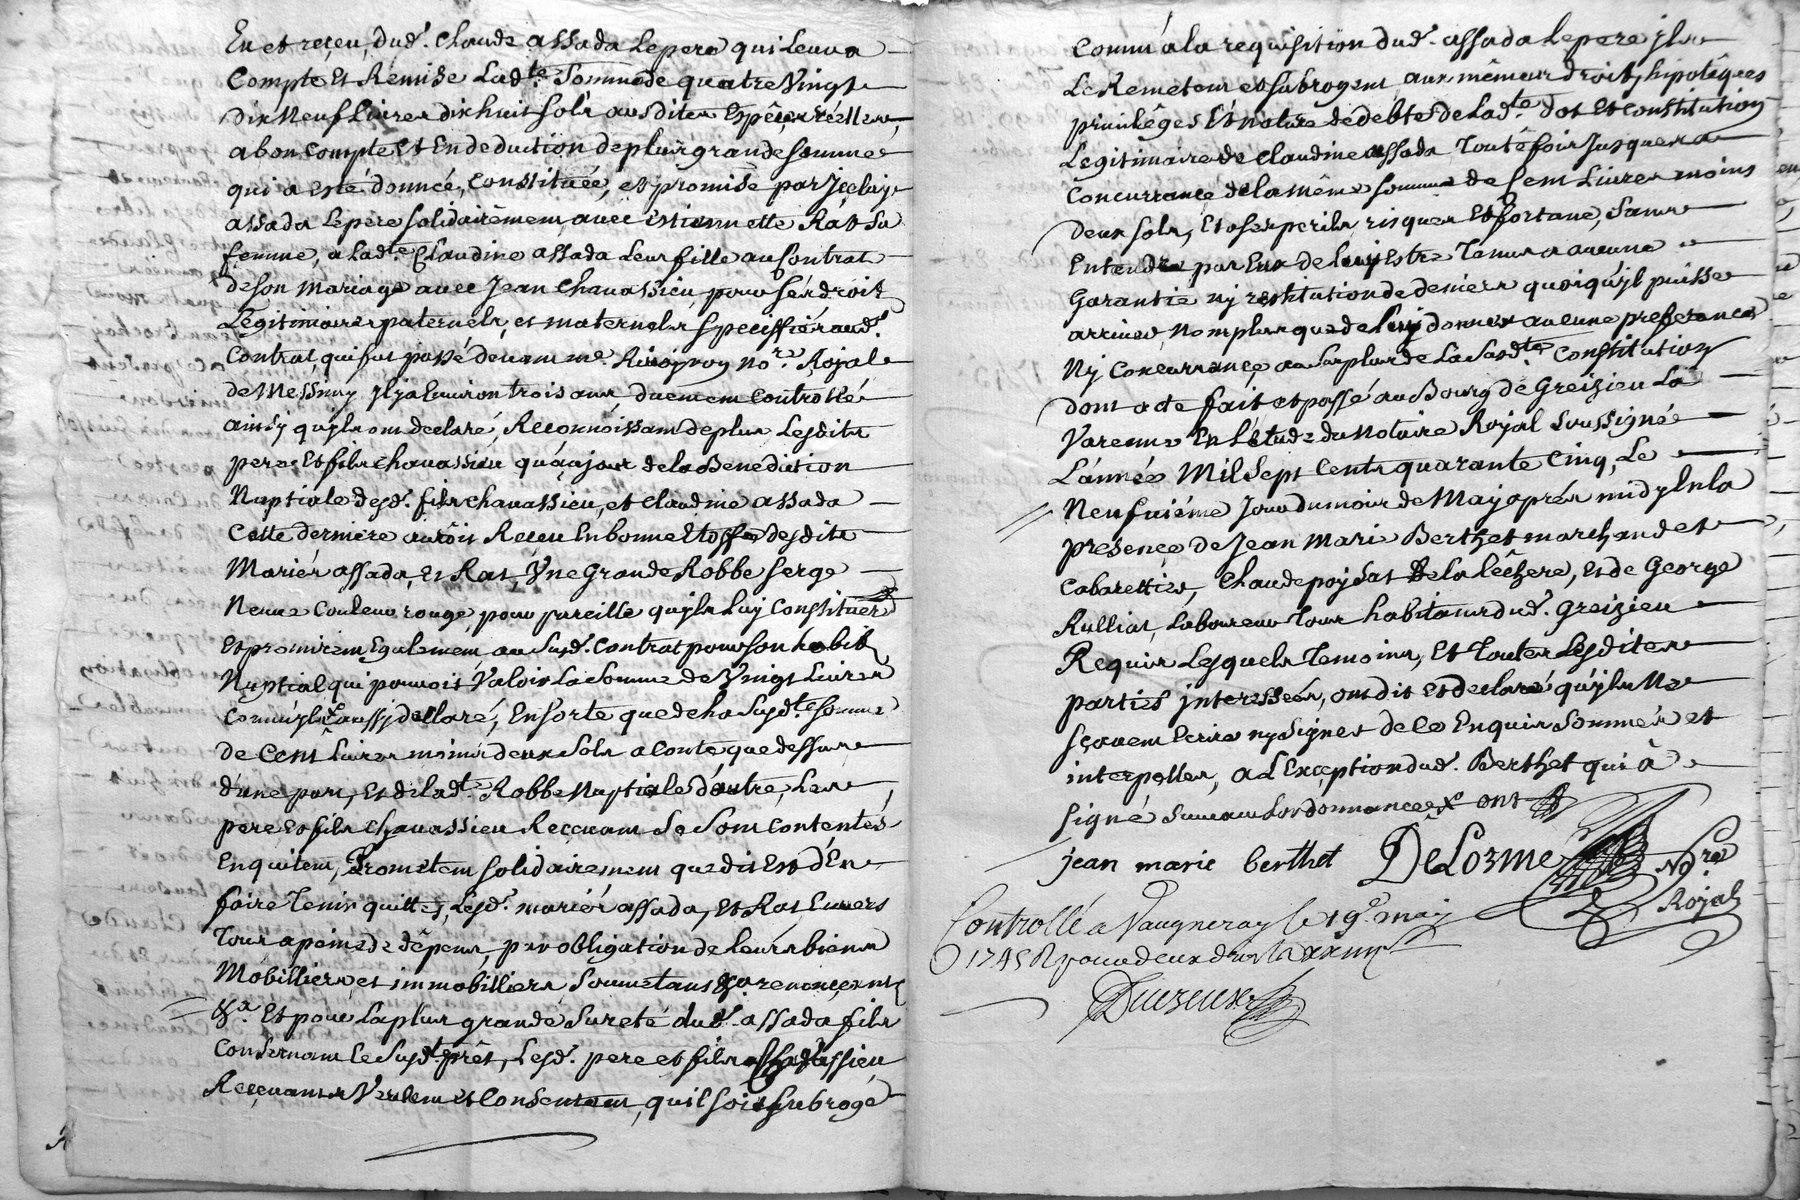 Eu et reçeu, dud. Claude assada Le pere qui Leur a
Compte Et Remise Lad.te Somme de quatre Vingt
dix Neuf Livres dix huit sols ausdites Espêces réelles,
a bon compte et En deduction de plus grande somme
qui a esté donnée, Constituée, et promise par Jceluy
assada Le pere solidairêment avec Estiennette Rat Sa
femme, a Lad.te Claudine assada Leur fille au Contrat
de son Mariage avec Jean Chavassieu pour ses droit
Légitimaires paternels, et maternels speciffiés aud.
Contrat, qui fut passé devant me. No.re Royal
de Messimy Jl y a Environ trois ans duement Controllé
ainsy qu'jls ont declaré, Reconnoissant de plus Lesdits
pere et fils Chavassieu qu'au jour de la Benediction
Nuptiale desd. fils Chavassieu, et Claudine assada
Cette derniere auroit Receu En bonne Etoffe desdits
Mariés assada, et Rat, Vne Grande Robbe serge
Neuve Couleur rouge, pour pareille qu'jls Luy Constituer
et promirent Egalement au Susd. Contrat pour son habit
Nuptial qui pouvoit Valoir La Somme de Vingt Livres
Comm'jls aussy declaré, En sorte que de La Susd.te somme
de Cent Livres moins deux Sols a Conte que dessus
d'une part, et de Lad. Robbe Nuptiale d'autre, Les
pere et fils Chavassieu Recevant Se Sont Contentés
En quitent, Promettent solidairement que dit Est d'En
faire tenir quittes, Lesd. mariés assada, et Rat Envers
Tous a peine de dêpens, par obligation de Leurs biens
Mobilliers et immobilliers, Soumetans &a. renonceent
&a. Et pour La plus grande sureté dud. assada fils
Consernant Le Susd. prêt, Lesd. pere et fils Chavassieu
Recevants Veulent et Consentent, qu'il soit subrogé
Comm'a la requisition dud. assada Le pere jls
Le Remetent et subrogent aux mêmes droits, hipotêques
privilêges Et Nature de debte de Lad.te dot et Constitution
Legitimaire de Claudine assada Toutêfois Jusques a
Concurrance de la même somme de Cent Livres moins
deux sols, Et a ses perils, risques Et fortune, Sans
Entendre par Eux de Luy Estre Tenus a aucune
Garantie ny restitution de deniers quoiqu'jl puisse
arriver, Non plus que de Luy donner aucune preference
Ny Concurrance au Surplus de La Susd.te Constitution
dont acte fait et passé au Bourg de Greizieu La
Varenne En L'étude du Notaire Royal Soussigné
L'année Mil Sept Cents quarante Cinq, Le
Neufuiéme Jour du mois de May aprés midy En la
presence de Jean Marie Berthet marchand et
Cabarettier, Claude poydat de la Lêchere, et de George
Rulliat, Laboureur Tous habitants dud. Greizieu
Requis Lesquels Temoins, Et Toutes Lesdites
parties jnteressées, ont dit et declaré qu'jls Ne
sçavent Ecrire ny Signer de ce Enquis Sommés et
interpellés, a L'Exception dud. Berthet qui à
signé Suivant Lordonnance
jean marie berthet DeLorme No.re
Royal
Controllé a Vaugneray le 19e may
1745 R pour deux droits